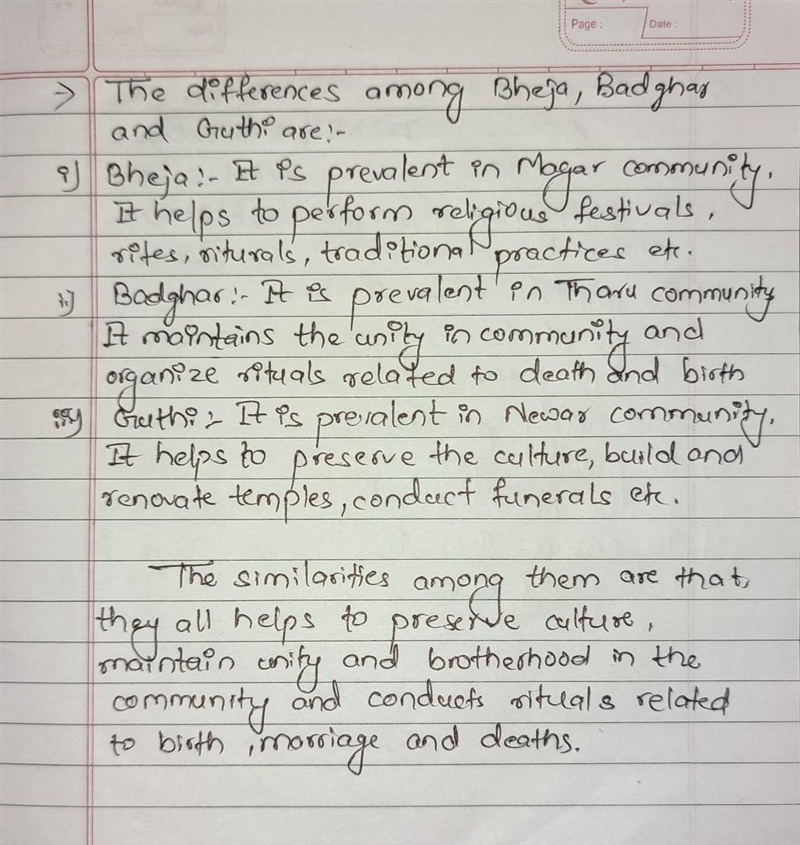 Page :
Date :
-> The differences among Bheja, Badghar
and Guthi are:-
i) Bheja:- It is prevalent in Magar community.
It helps to perform religious festivals,
rites, riturals, traditional practices etc.
ii) Badghar:- It is prevalent in Tharu community
It maintains the unity in community and
organize rituals related to death and birth
iii) Guthi:- It is prevalent in Newar community.
It helps to preserve the culture, build and
renovate temples, conduct funerals etc.
The similarities among them are that,
they all helps to preserve culture,
maintain unity and brotherhood in the
community and conducts rituals related
to birth, morriage and deaths.